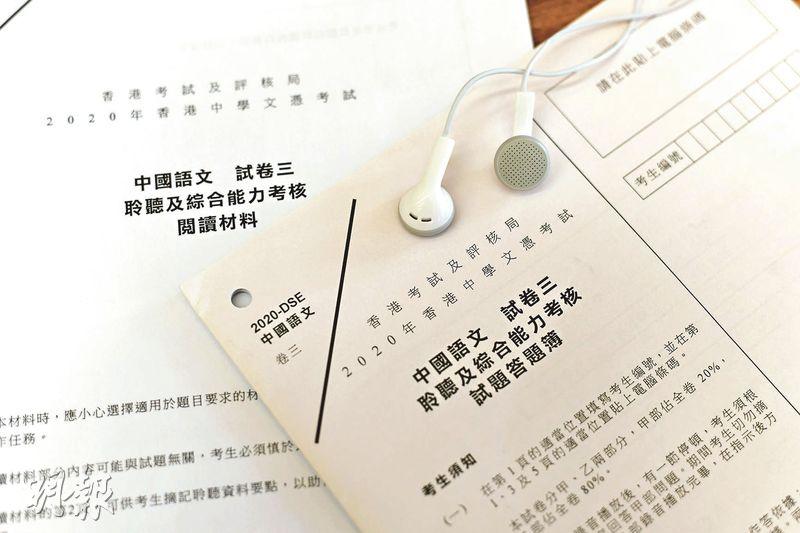 香港考試及評核局
2020年香港中學文憑考試
中國語文　試卷三
聆聽及綜合能力考核
閱讀材料
本材料時，應小心選擇適用於題目要求的材
作任務。
讀材料部分內容可能與試題無關，考生必須慎於
讀材料的第2頁，可供考生摘記聆聽資料要點，以助
2020-DSE
中國語文
卷三
香港考試及評核局
2020年香港中學文憑考試
中國語文　試卷三
聆聽及綜合能力考核
試題答題簿
考生須知
(一)　在第1頁的適當位置填寫考生編號，並在第
1、3及5頁的適當位置貼上電腦條碼。
本試卷分甲、乙兩部分，甲部佔全卷20%，
部佔全卷80%。
錄音播放後，有一節停頓，考生須根
回答甲部問題。期間考生切勿摘
部錄音播放完畢，在指示後方
作答依據，
請在此貼上電腦條碼
考生編號
明報